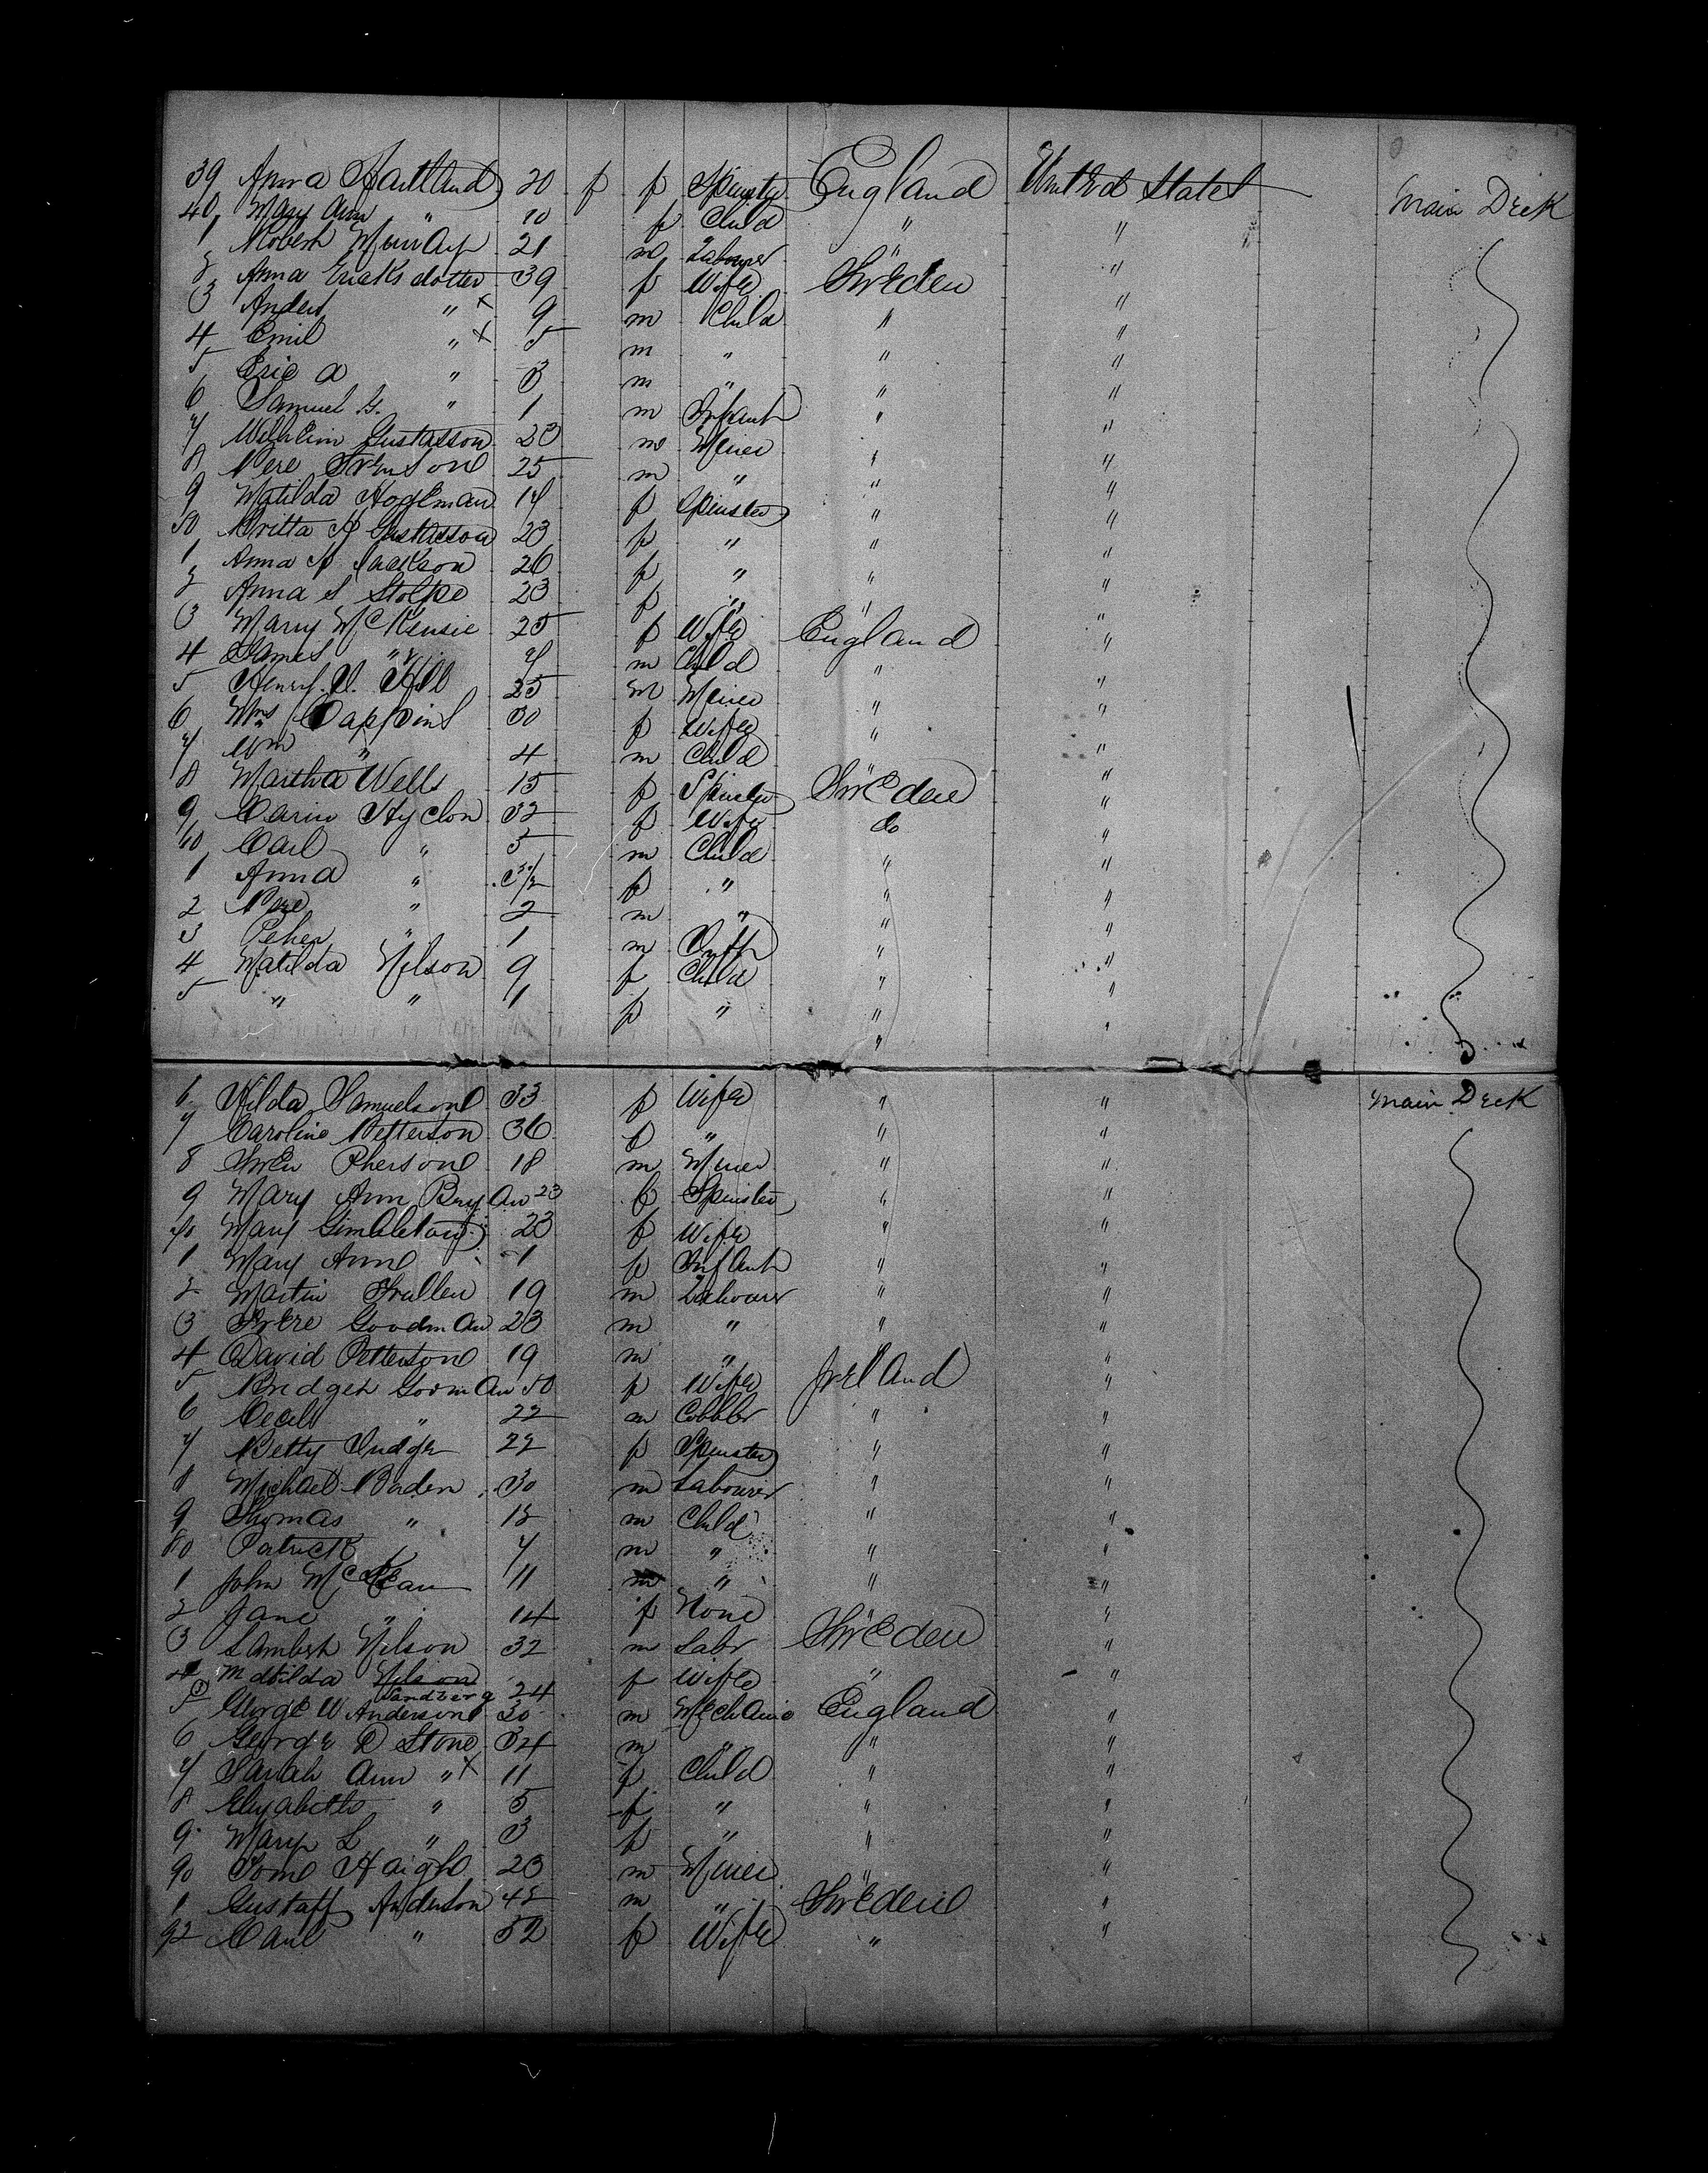 39 Anna Hartland 20 f f Spinster England United States Main Deck
40 Mary Ann " 10 f Child " "
1 Robert Murray 21 m Labourer " "
2 Anna Ericksdotter 39 f Wife Sweden "
3 Anders " x 9 m Child " "
4 Emil " x 5 m " " "
5 Eric A " 3 m " " "
6 Samuel G. " 1 m Infant " "
7 Wilhelm Gustasson 23 m Miner " "
8 Pere Svensone 25 m " " "
9 Matilda Hogeman 17 f Spinster " "
50 Britta Gustasson 23 f " " "
1 Anna Isackson 26 f " " "
2 Anna S Stolpe 23 f " " "
3 Mary McKensie 25 f Wife England "
4 James " 7 m Child " "
5 Henry V. Hill 25 m Miner " "
6 Mrs Cappins 30 f Wife " "
7 Wm " 4 m Child " "
8 Martha Wells 15 f Spinster Sweden "
9 Carin Hyclon 32 f Wife do "
60 Carl " 5 m Child " "
1 Anna " 3 1/2 f " " "
2 Pere " 2 m " " "
3 Peher " 1 m Inft " "
4 Matilda Nelson 9 f Child " "
5 " " 1 f " " "
6 Hilda Samuelsone 33 f Wife " " Main Deck
7 Caroline Petterson 36 f " " "
8 Swen Phersone 18 m Miner " "
9 Mary Ann Bryan 23 f Spinster " "
70 Mary Gimbleton 23 f Wife " "
1 Mary Anne 1 f Infant " "
2 Martin 19 m Labourer " "
3 Goodman 23 m " " "
4 David Pettersone 19 m " " "
5 Bridget Gorman 50 f Wife Ireland "
6 Cecils " 22 m Cobbler " "
7 Betty Judge 22 f Spinster " "
8 Michael Boden 30 m Labourer " "
9 Thomas " 12 m Child " "
80 Patrick " 7 m " " "
1 John McKean 11 m " " "
2 Jane " 14 f None " "
3 Lambert Nilson 32 m Labr Sweden "
4 Matilda Nelson f Wife " "
Sandberg 24
5 George W Anderson 30 m Mechanic England "
6 George D Stone 34 m " " "
7 Sarah Ann " x 11 f Child " "
8 Elizabeth " 5 f " " "
9 Mary L " 3 f " " "
90 Tome Haigh 23 m Miner " "
1 Gustaff Anderson 42 m " Swedene "
92 Carl " 52 f Wife " "